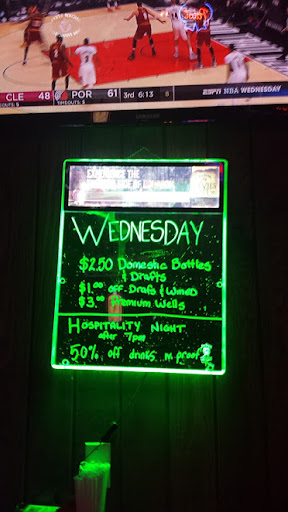 CLE 48 POR 61 3rd 6:13 8 ESPN NBA WEDNESDAY
TIMEOUTS: 5 TIMEOUTS: 5
SAMSUNG
EXPERIENCE THE
WEDNESDAY
$2.50 Domestic Bottles
& Drafts
$1.00 off Drafts & Wine
$3.00 Premium Wells
HOSPITALITY NIGHT
after 7pm
50% off drinks w. proof